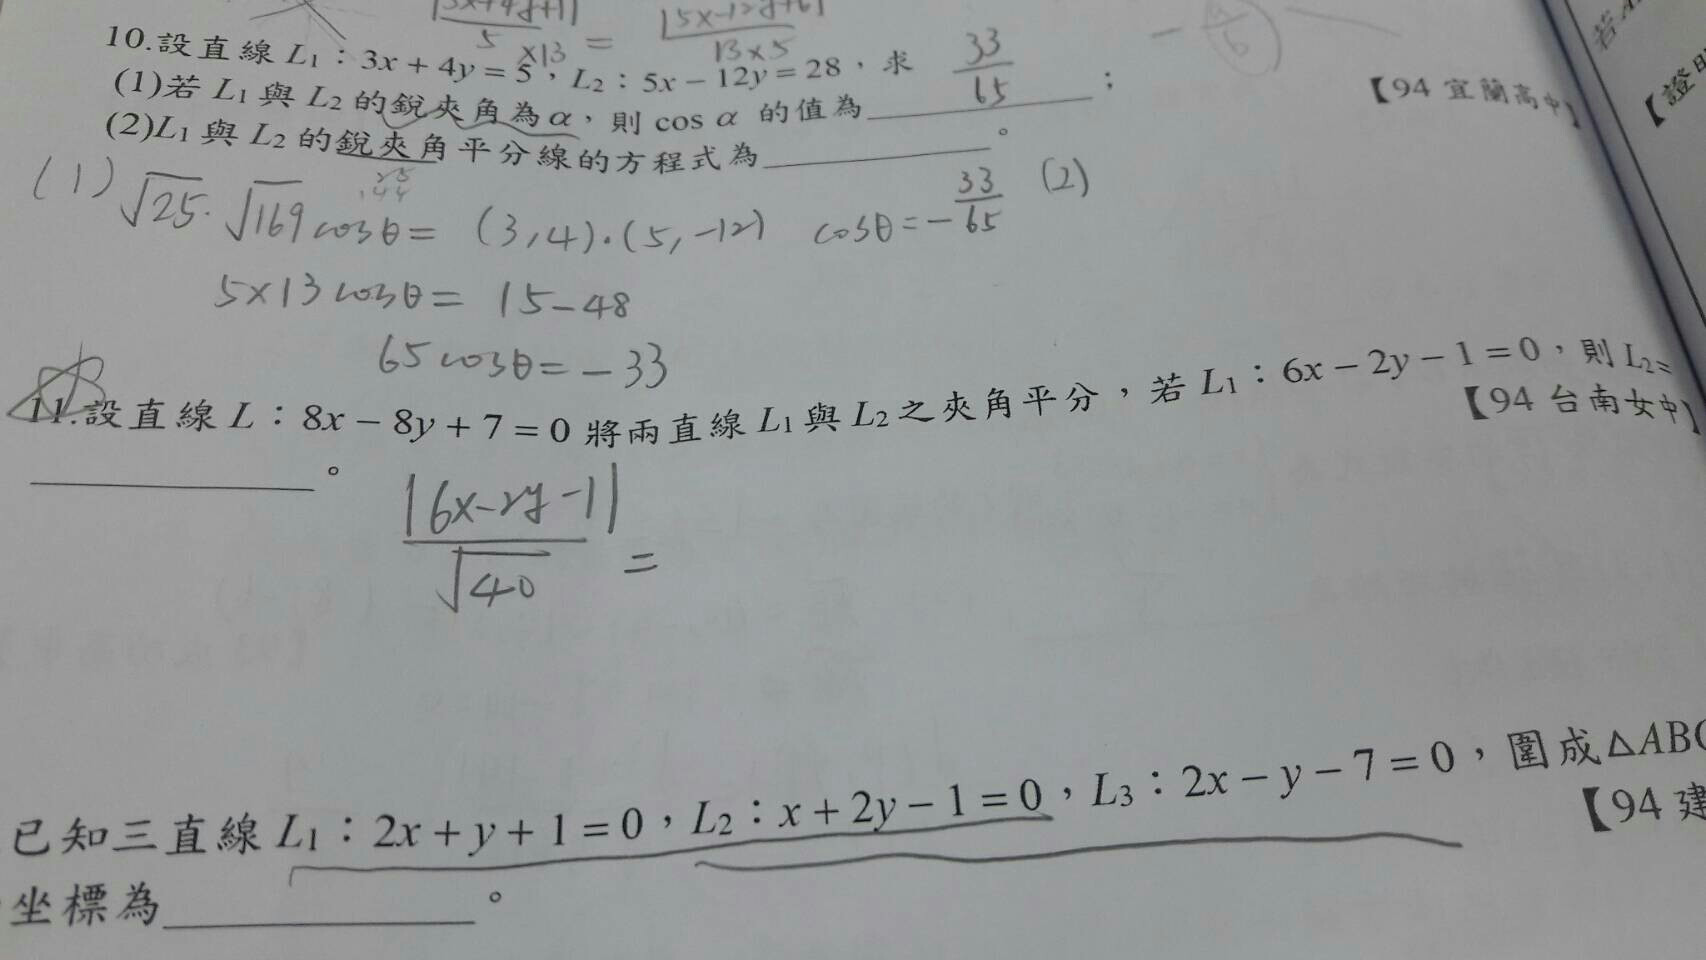 5 ×13 = 13×5
10.設直線 L1：3x + 4y = 5，L2：5x − 12y = 28，求
(1)若 L1 與 L2 的銳夾角為 α，則 cos α 的值為 33/65 ；
【94 宜蘭高中】
(2)L1 與 L2 的銳夾角平分線的方程式為 。
(1) √25 · √169 cosθ = (3,4)·(5,-12) cosθ = -33/65 (2)
5×13 cosθ = 15-48
65 cosθ = -33
11.設直線 L：8x − 8y + 7 = 0 將兩直線 L1 與 L2 之夾角平分，若 L1：6x − 2y − 1 = 0，則 L2=
【94 台南女中】
。
|6x-2y-1| / √40 =
已知三直線 L1：2x + y + 1 = 0，L2：x + 2y − 1 = 0，L3：2x − y − 7 = 0，圍成△ABC
【94 建
坐標為 。